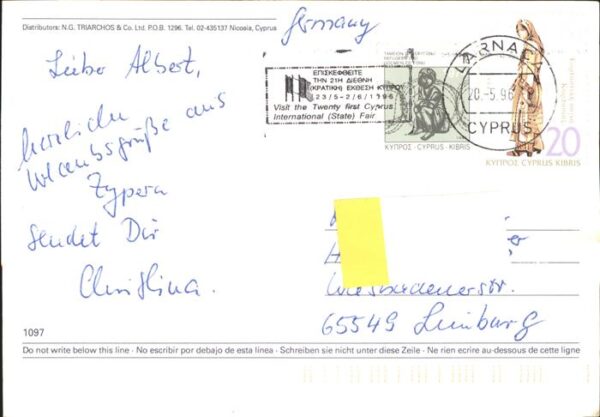 Distributors: N.G. TRIARCHOS & Co. Ltd. P.O. 1296. Tel. 02-435137 Nicosia, Cyprus
Germany
Lieber Albert,
herzliche
Urlaubsgrüße aus
Zypern
sendet Dir
Christina.
ΕΠΙΣΚΕΦΘΕΙΤΕ
ΤΗΝ 21Η ΔΙΕΘΝΗ
(ΚΡΑΤΙΚΗ) ΕΚΘΕΣΗ ΚΥΠΡΟΥ
23/5-2/6/1996
Visit the Twenty first Cyprus
International (State) Fair
LARNACA
20.-5.96
CYPRUS
ΚΥΠΡΟΣ · CYPRUS · KIBRIS
20
ΚΥΠΡΟΣ CYPRUS KIBRIS
Wiesbadenerstr.
65549 Limburg
1097
Do not write below this line · No escribir por debajo de esta línea · Schreiben sie nicht unter diese Zeile · Ne rien ecrire au-dessous de cette ligne